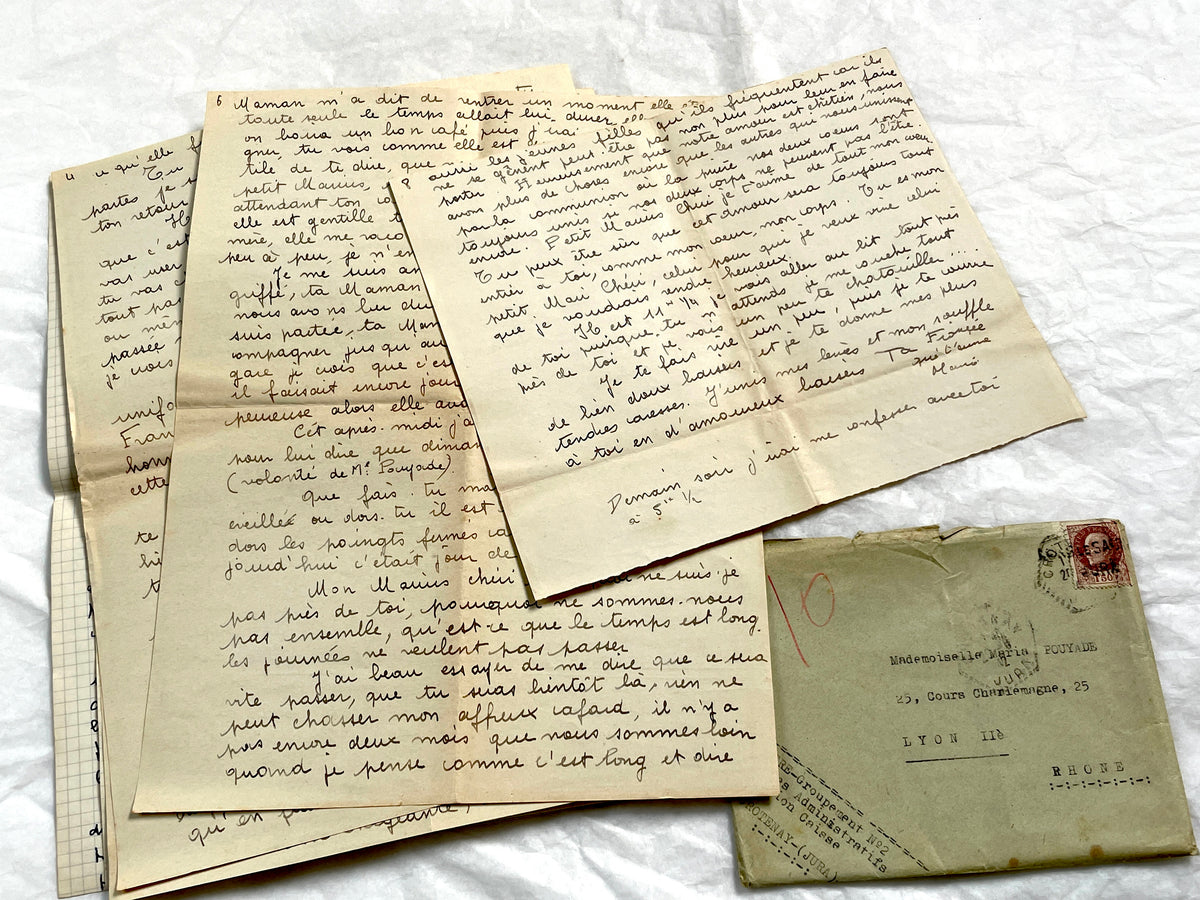 4 ce qu'elle
Tu
partes je s
ton retour
que c'est
vas
tu vas
tout pas
ou
passée
je crois
unifo
Fran
honn
cette
te
6 Maman m'a dit de rentrer un moment elle
toute seule le temps allait lui durer
on boira un bon café puis j'irai
tu vois comme elle est
tile de te dire, que
petit Marius,
attendant ton
elle est gentille
mère, elle me raco
peu à peu, je n'en
Je me suis
griffé, ta Maman
nous avons bu du
suis partée, ta Mam
compagner jusqu'au
gare je crois que c'es
il faisait encore jour
peureuse alors elle
Cét après-midi j'a
pour lui dire que diman
(volonté de Me Pouyade).
Que fais-tu ma
éveillée ou dors-tu il est
dors les poingts fermés ca
jourd'hui c'était jour de
Mon Marius chéri ne suis-je
pas près de toi, pourquoi ne sommes-nous
pas ensemble, qu'est-ce que le temps est long
les journées ne veulent pas passer
J'ai beau essayer de me dire que ce sera
vite passer, que tu seras bientôt là, rien ne
peut chasser mon affreux cafard, il n'y a
pas encore deux mois que nous sommes loin
quand je pense comme c'est long et dire
qu'en
8 aussi les jeunes filles qu'ils fréquentent car ils
ne se gênent peut être pas non plus pour leur en faire
porter. Heureusement que notre amour est chrétien, nous
avons plus de choses encore que les autres qui nous unissent
par la communion ou la prière nos deux coeurs sont
toujours unis si nos deux corps ne peuvent pas l'être
encore. Petit Marius Chéri je t'aime de tout mon coeur
Tu peux être sûr que cet amour sera toujours tout
entier à toi, comme mon coeur, mon corps. Tu es mon
petit Mari Chéri, celui pour qui je veux vivre celui
que je voudrais rendre heureux.
Il est 11 h 1/4 je vais aller au lit tout près
de toi puisque tu m'attends je me couche tout
près de toi et je vais un peu te chatouiller...
Je te fais rire un peu, puis je te couvre
de bien doux baisers et je te donne mes plus
tendres caresses. J'unis mes lèvres et mon souffle
à toi en d'amoureux baisers Ta Fiancée
qui t'aime
Maria
Demain soir j'irai me confesser avec toi
à 5 h 1/2
10
1F50
JURA
Mademoiselle Maria POUYADE
25, Cours Charlemagne, 25
LYON IIè
RHONE
RE-Groupement N°2
s Administratifs
on Caisse
ROTENAY-(JURA)